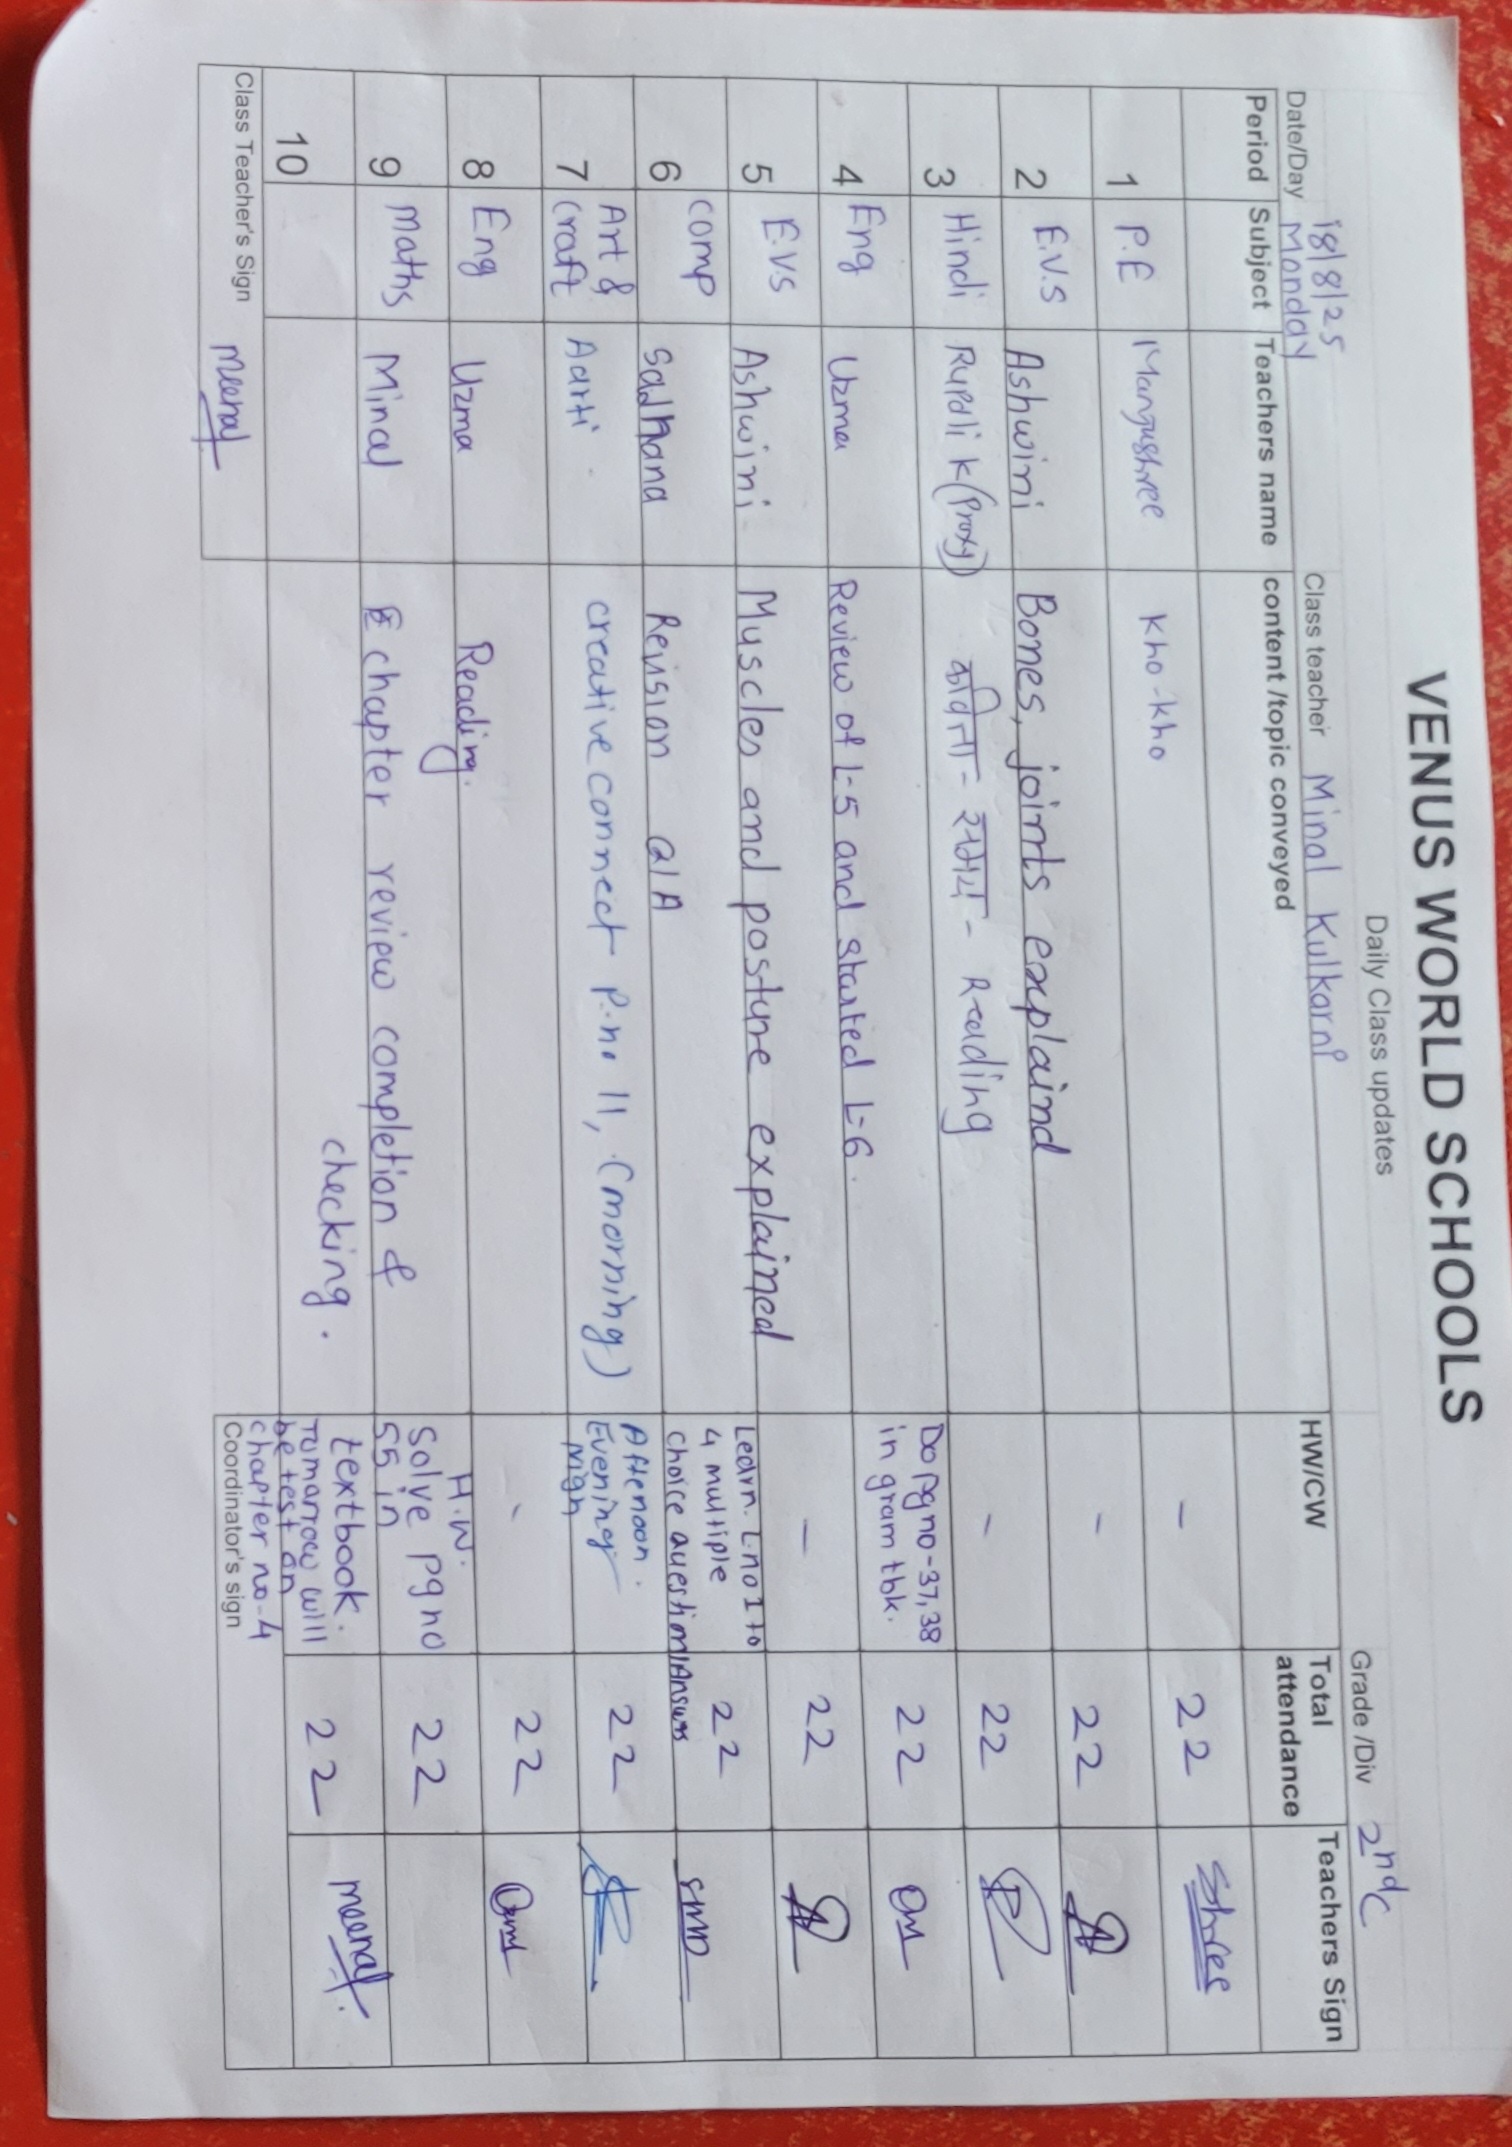 VENUS WORLD SCHOOLS
Daily Class updates
Date/Day 18/8/25 Monday Class teacher Minal Kulkarni Grade /Div 2nd C
Period Subject Teachers name content /topic conveyed HW/CW Total attendance Teachers Sign
1 P.E Mangushree Kho-Kho - 22 Shree
2 E.V.S Ashwini Bones, joints explaind - 22
3 Hindi Rupali K (Proxy) कविता - समय - Reading - 22
4 Eng Uzma Review of L-5 and started L-6. Do pg no-37,38 22
in gram tbk.
5 E.V.S Ashwini Muscles and posture explained - 22
6 Comp Sadhana Revision Q/A Learn. L no 1 to 22
4 multiple
choice question/Answrs
7 Art & Craft Aarti. creative connect P.no 11, (morning) Aftenoon. 22
Evening
Nigh
8 Eng Uzma Reading. - 22
9 maths Minal chapter review completion & H.W. 22
checking. Solve pg no
55 in
textbook.
10 Tomarrow will 22 meenal.
be test on
chapter no-4
Class Teacher's Sign meenal Coordinator's sign